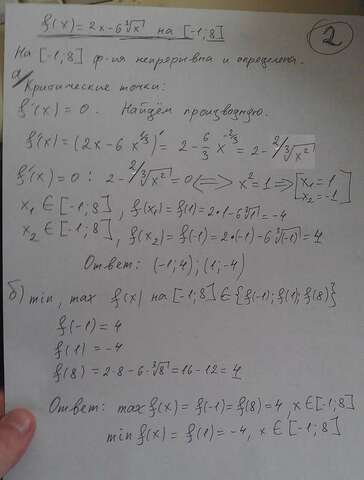 f(x) = 2x - 6∛x на [-1; 8]
2
На [-1; 8] ф-ия непрерывна и определена.
а) Критические точки:
f'(x) = 0. Найдём производную.
f'(x) = (2x - 6x^{1/3})' = 2 - 6/3 x^{-2/3} = 2 - 2/∛x²
f'(x) = 0 : 2 - 2/∛x² = 0 <=> x² = 1 => [x₁ = 1 x₂ = -1]
x₁ ∈ [-1; 8], f(x₁) = f(1) = 2·1 - 6∛1 = -4
x₂ ∈ [-1; 8], f(x₂) = f(-1) = 2·(-1) - 6∛(-1) = 4
Ответ: (-1; 4); (1; -4)
б) min, max f(x) на [-1; 8] ∈ {f(-1); f(1); f(8)}
f(-1) = 4
f(1) = -4
f(8) = 2·8 - 6·∛8 = 16 - 12 = 4
Ответ: max f(x) = f(-1) = f(8) = 4, x ∈ [-1; 8]
min f(x) = f(1) = -4, x ∈ [-1; 8]